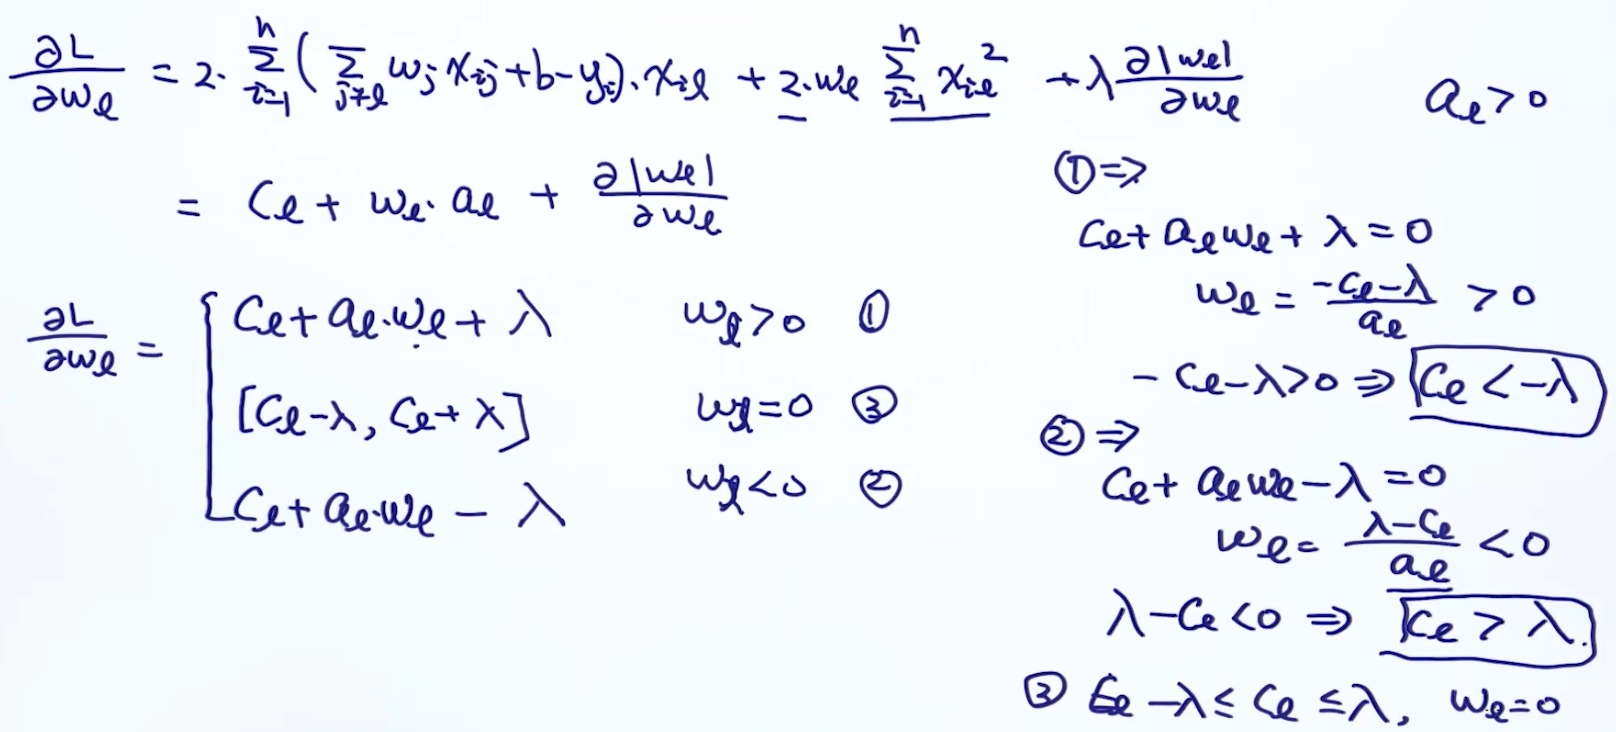 ∂L/∂wℓ = 2·∑_{i=1}^{n}(∑_{j≠ℓ} wj xij + b - yi)·xiℓ + 2·wℓ ∑_{i=1}^{n} xiℓ² + λ ∂|wℓ|/∂wℓ
= Cℓ + wℓ·aℓ + ∂|wℓ|/∂wℓ
∂L/∂wℓ =
Cℓ + aℓ·wℓ + λ wℓ>0 ①
[Cℓ-λ, Cℓ+λ] wℓ=0 ③
Cℓ + aℓ·wℓ - λ wℓ<0 ②
aℓ>0
①⇒
Cℓ + aℓwℓ + λ = 0
wℓ = (-Cℓ-λ)/aℓ > 0
-Cℓ-λ>0 ⇒ Cℓ < -λ
②⇒
Cℓ + aℓwℓ - λ = 0
wℓ = (λ-Cℓ)/aℓ < 0
λ-Cℓ<0 ⇒ Cℓ > λ.
③ -λ ≤ Cℓ ≤ λ, wℓ=0